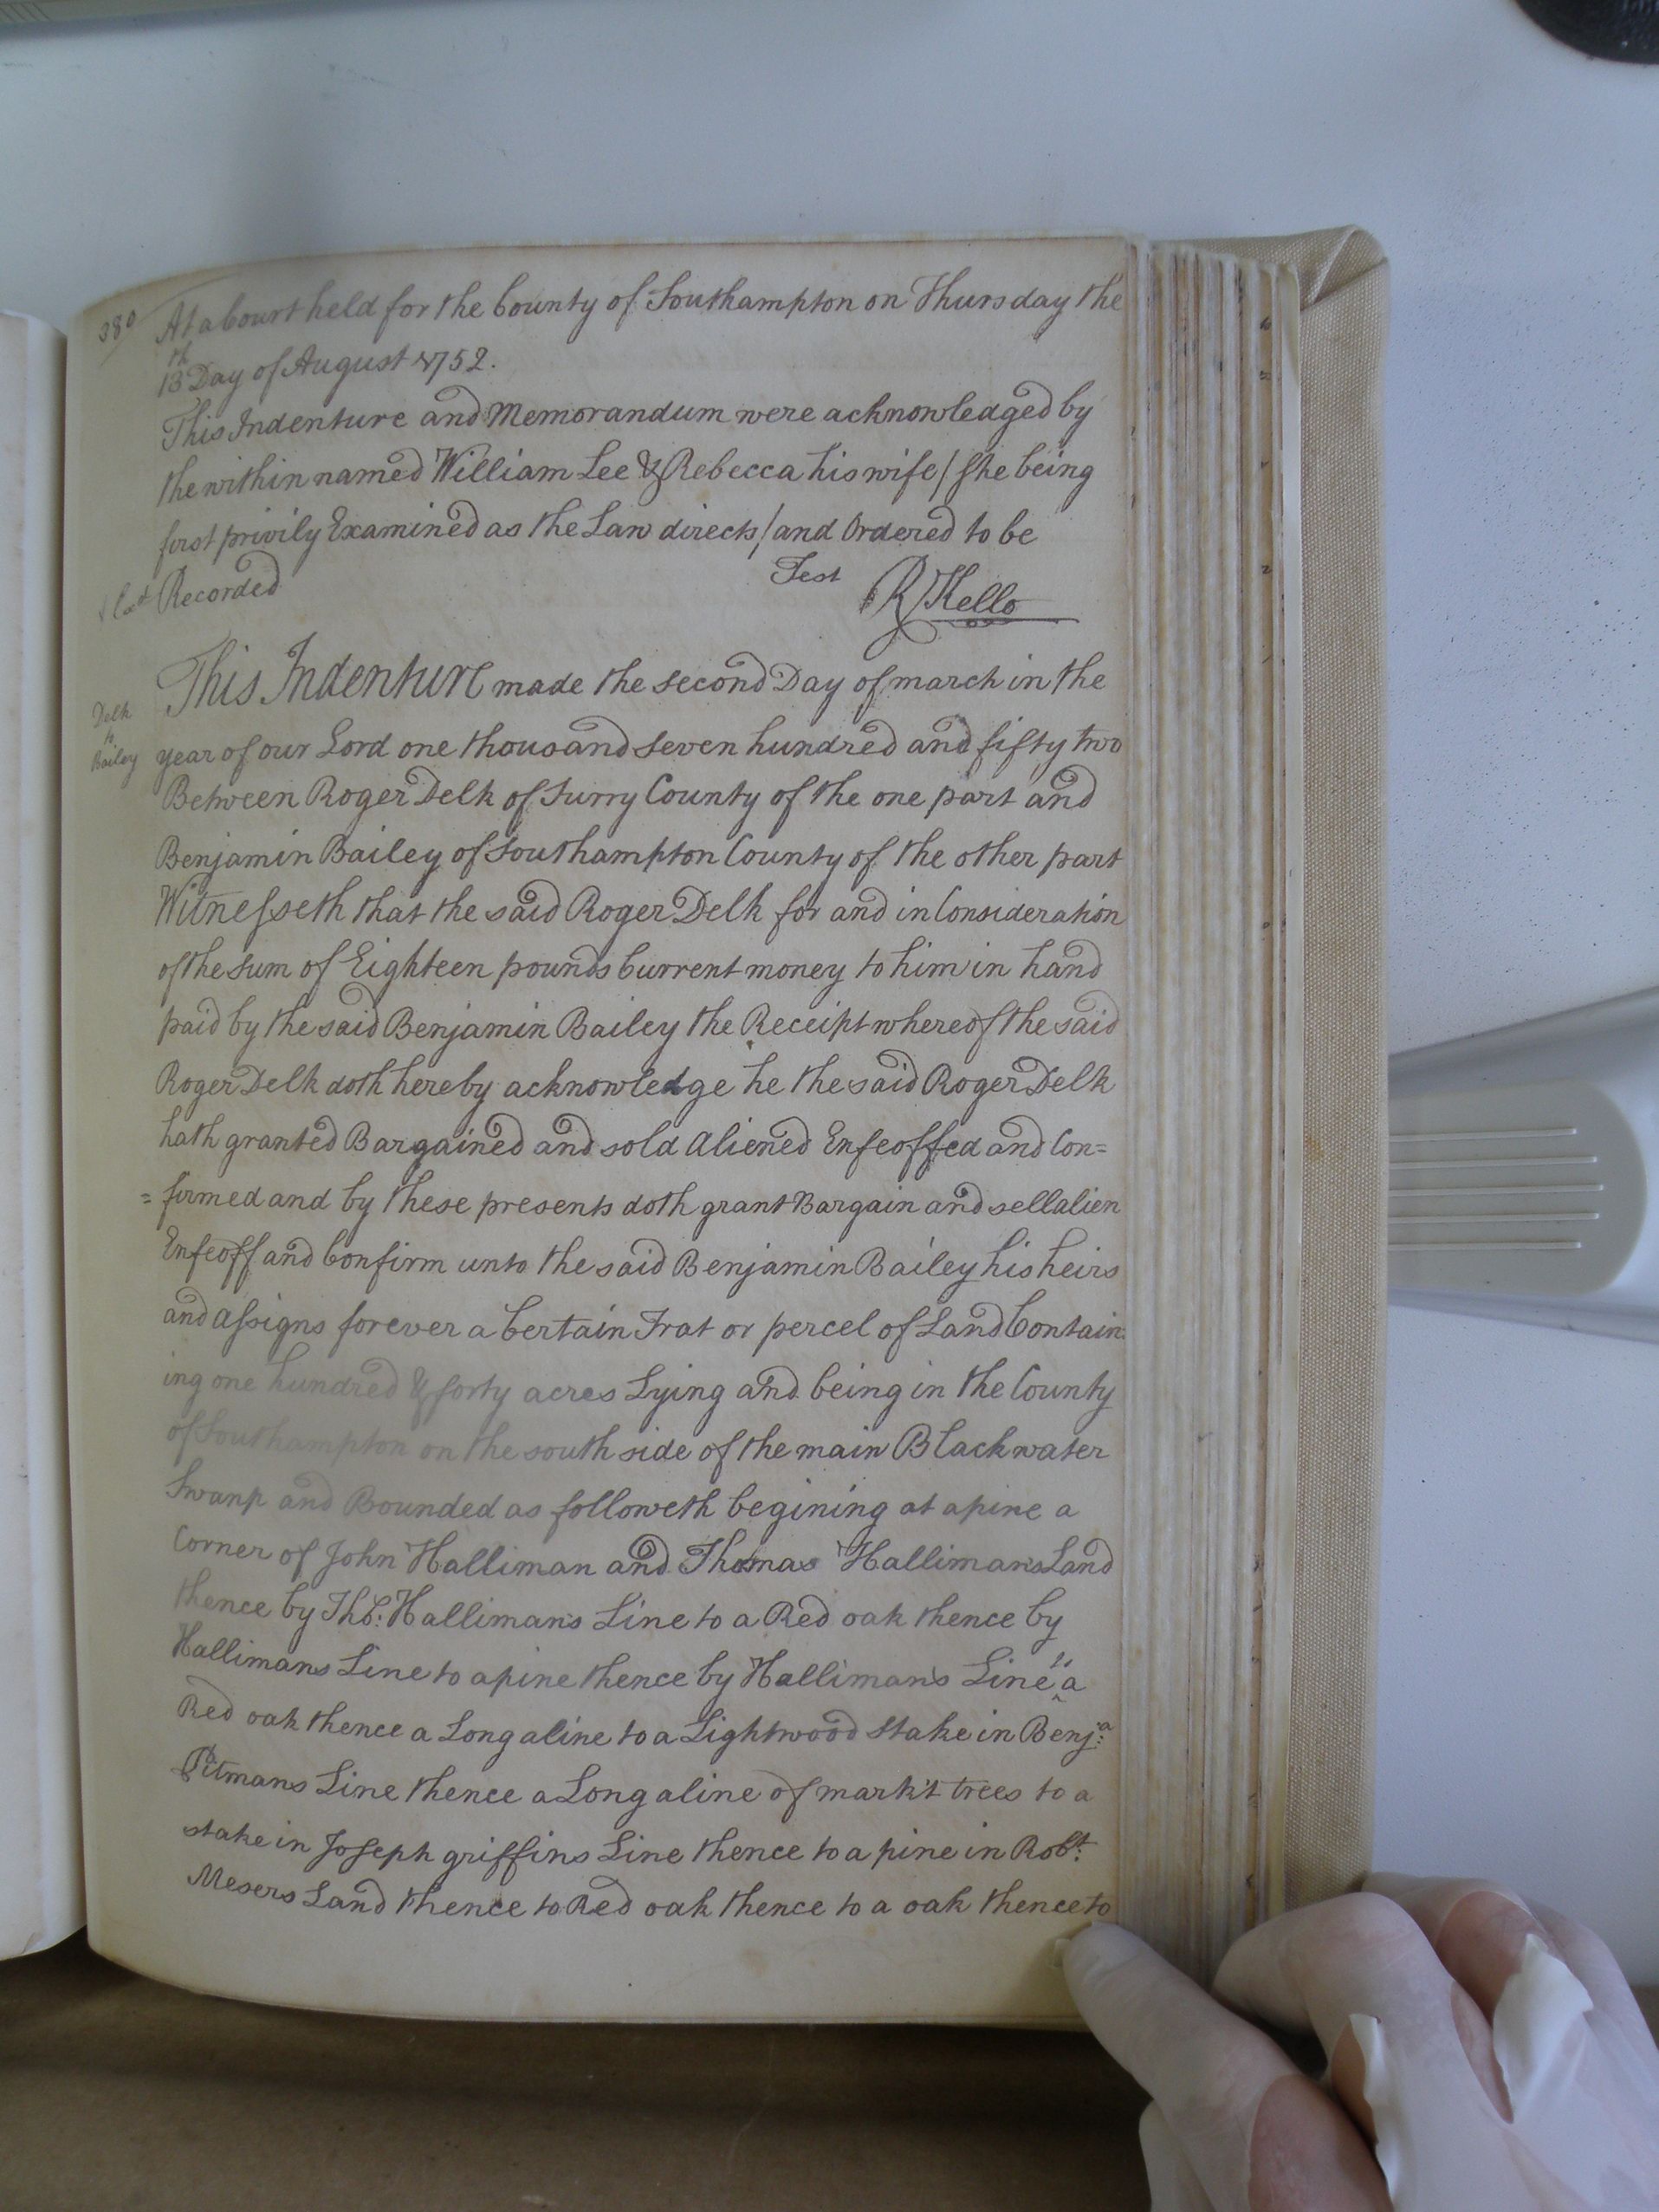 380
At a Court held for the County of Southampton on Thursday the
13th Day of August 1752.
This Indenture and Memorandum were acknowledged by
the within named William Lee & Rebecca his wife / she being
first privily Examined as the Law directs / and Ordered to be
Recorded
Test RKello
This Indenture made the second Day of march in the
Delk
to
Bailey
year of our Lord one thousand seven hundred and fifty two
Between Roger Delk of Surry County of the one part and
Benjamin Bailey of Southampton County of the other part
Witnesseth that the said Roger Delk for and in Consideration
of the Sum of Eighteen pounds Current money to him in hand
paid by the said Benjamin Bailey the Receipt whereof the said
Roger Delk doth hereby acknowledge he the said Roger Delk
hath granted Bargained and sold Aliened Enfeoffed and Con=
=firmed and by these presents doth grant Bargain and sell alien
Enfeoff and Confirm unto the said Benjamin Bailey his heirs
and assigns forever a Certain Trat or percel of Land Contain
ing one hundred & forty acres Lying and being in the County
of Southampton on the south side of the main Blackwater
Swanp and Bounded as followeth begining at a pine a
Corner of John Halliman and Thomas Halliman's Land
thence by Tho: Halliman's Line to a Red oak thence by
Hallimans Line to a pine thence by Halliman's Line to a
Red oak thence a Long a line to a Lightwood Stake in Benja:
Pitmans Line thence a Long a line of mark't trees to a
stake in Joseph griffins Line thence to a pine in Robt:
Mesers Land thence to Red oak thence to a oak thence to